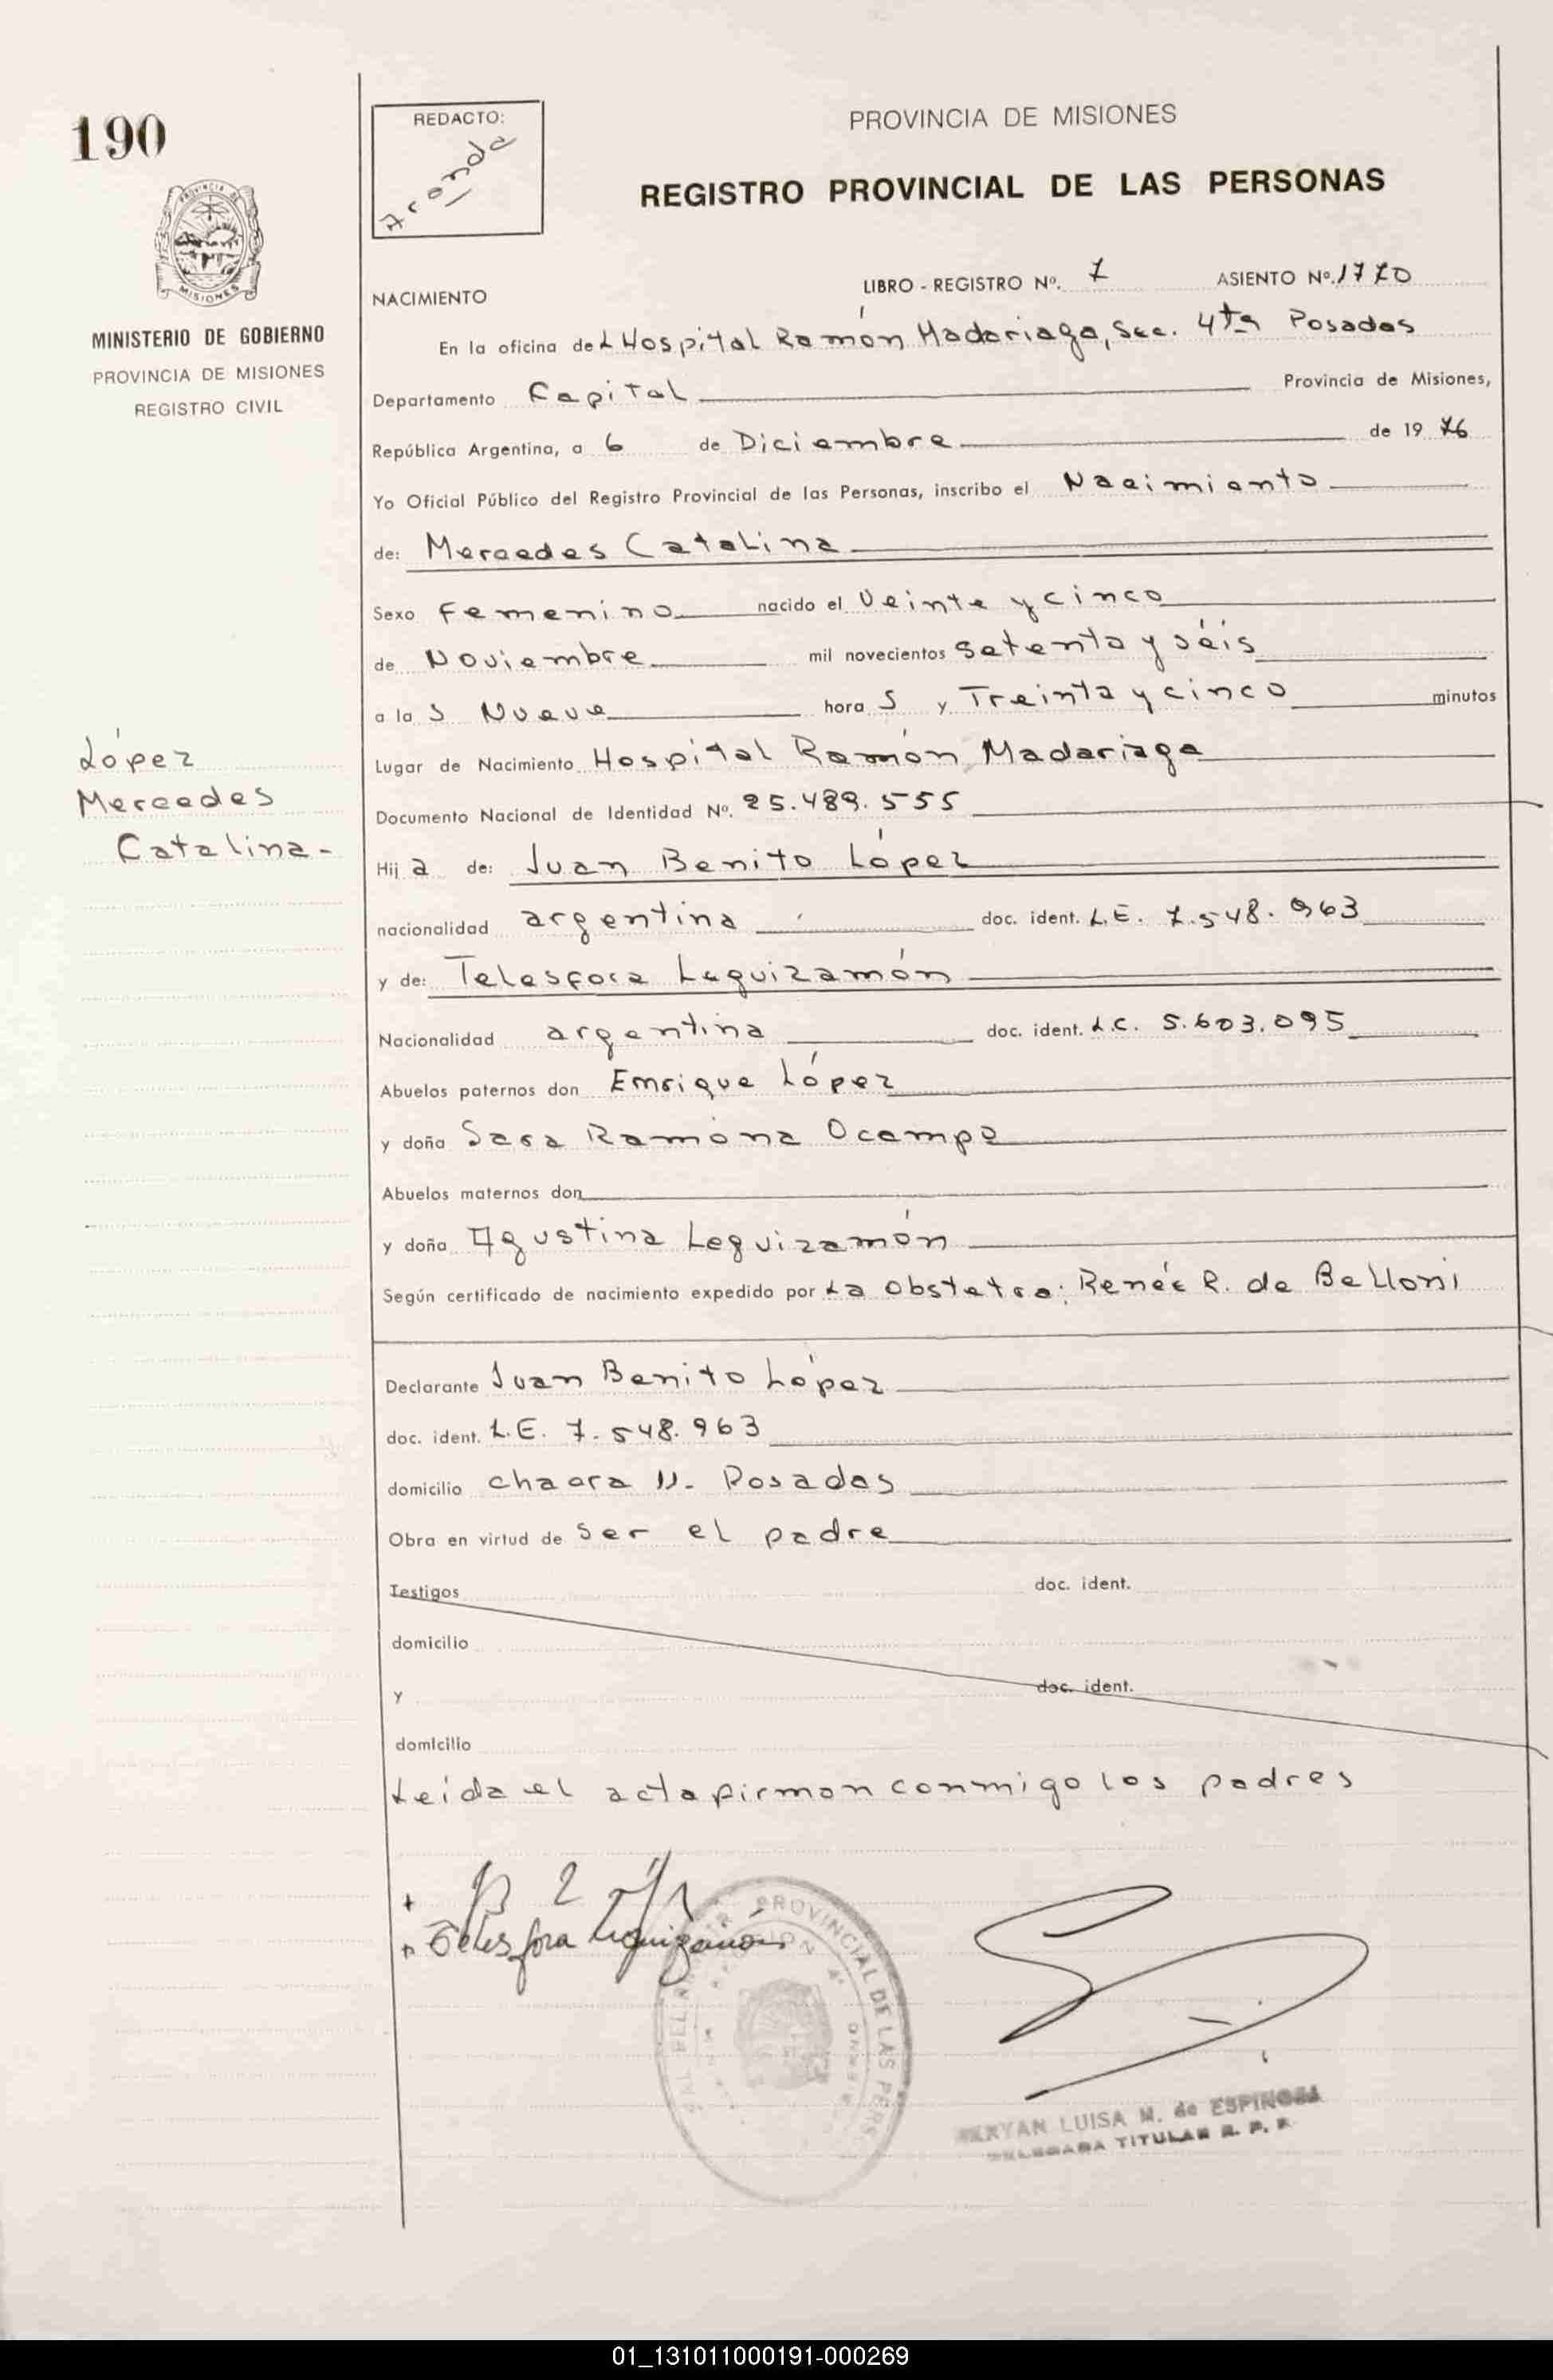 190
REDACTO:
Aronda
PROVINCIA DE MISIONES
REGISTRO PROVINCIAL DE LAS PERSONAS
PROVINCIA DE
MISIONES
MINISTERIO DE GOBIERNO
PROVINCIA DE MISIONES
REGISTRO CIVIL
LIBRO - REGISTRO Nº. 7 ASIENTO Nº. 1770
NACIMIENTO
En la oficina del Hospital Ramón Madariaga, Sec. 4ta Posadas
Departamento Capital Provincia de Misiones,
República Argentina, a 6 de Diciembre de 1976
Yo Oficial Público del Registro Provincial de las Personas, inscribo el Nacimiento
de: Mercedes Catalina
Sexo Femenino nacido el Veinte y cinco
de Noviembre mil novecientos setenta y séis
a las Nueve horas y Treinta y cinco minutos
Lugar de Nacimiento Hospital Ramón Madariaga
López
Mercedes
Catalina-
Documento Nacional de Identidad Nº. 25.489.555
Hija de: Juan Benito López
nacionalidad argentina doc. ident. L.E. 7.548.963
y de: Telesfora Leguizamón
Nacionalidad argentina doc. ident. L.C. 5.603.095
Abuelos paternos don Enrique López
y doña Sara Ramona Ocampo
Abuelos maternos don
y doña Agustina Leguizamón
Según certificado de nacimiento expedido por La Obstetra: Renée R. de Belloni
Declarante Juan Benito López
doc. ident. L.E. 7.548.963
domicilio chacra 11- Posadas
Obra en virtud de ser el padre
Testigos doc. ident.
domicilio
y doc. ident.
domicilio
Leída el acta firman conmigo los padres
Telesfora Leguizamón
PROVINCIAL DE LAS PERS
LUISA M. de ESPINOSA
DELEGADA TITULAR R. P. P.
01_131011000191-000269